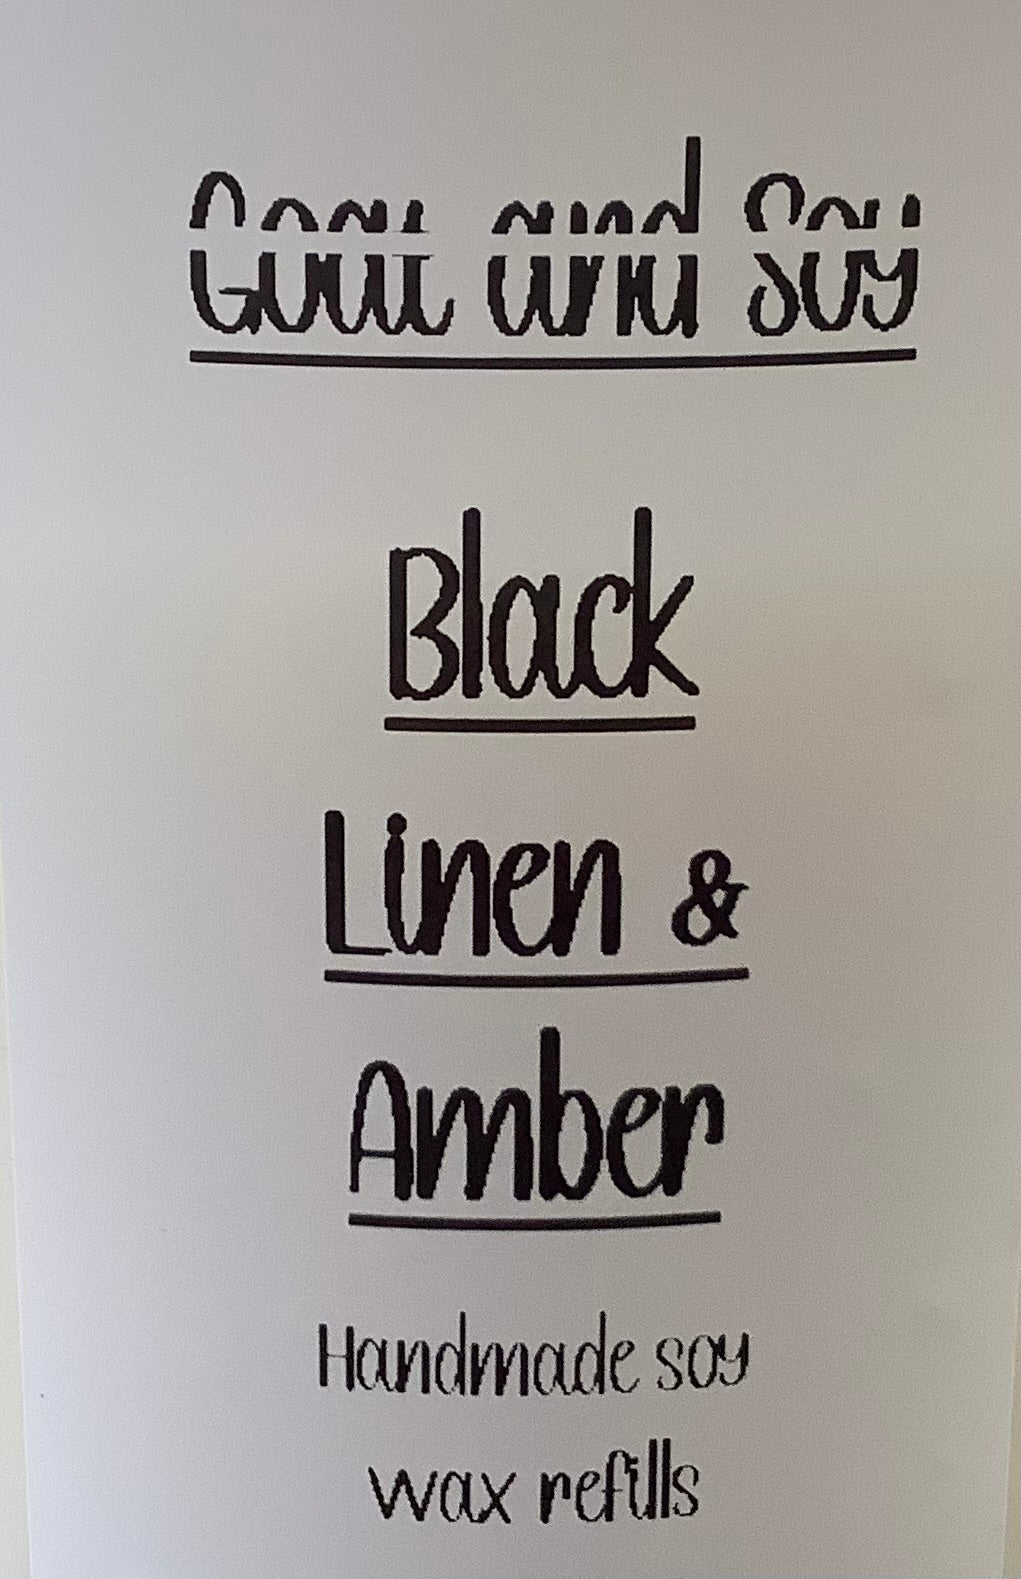 Goat and Soy
Black
Linen &
Amber
Handmade soy
wax refills